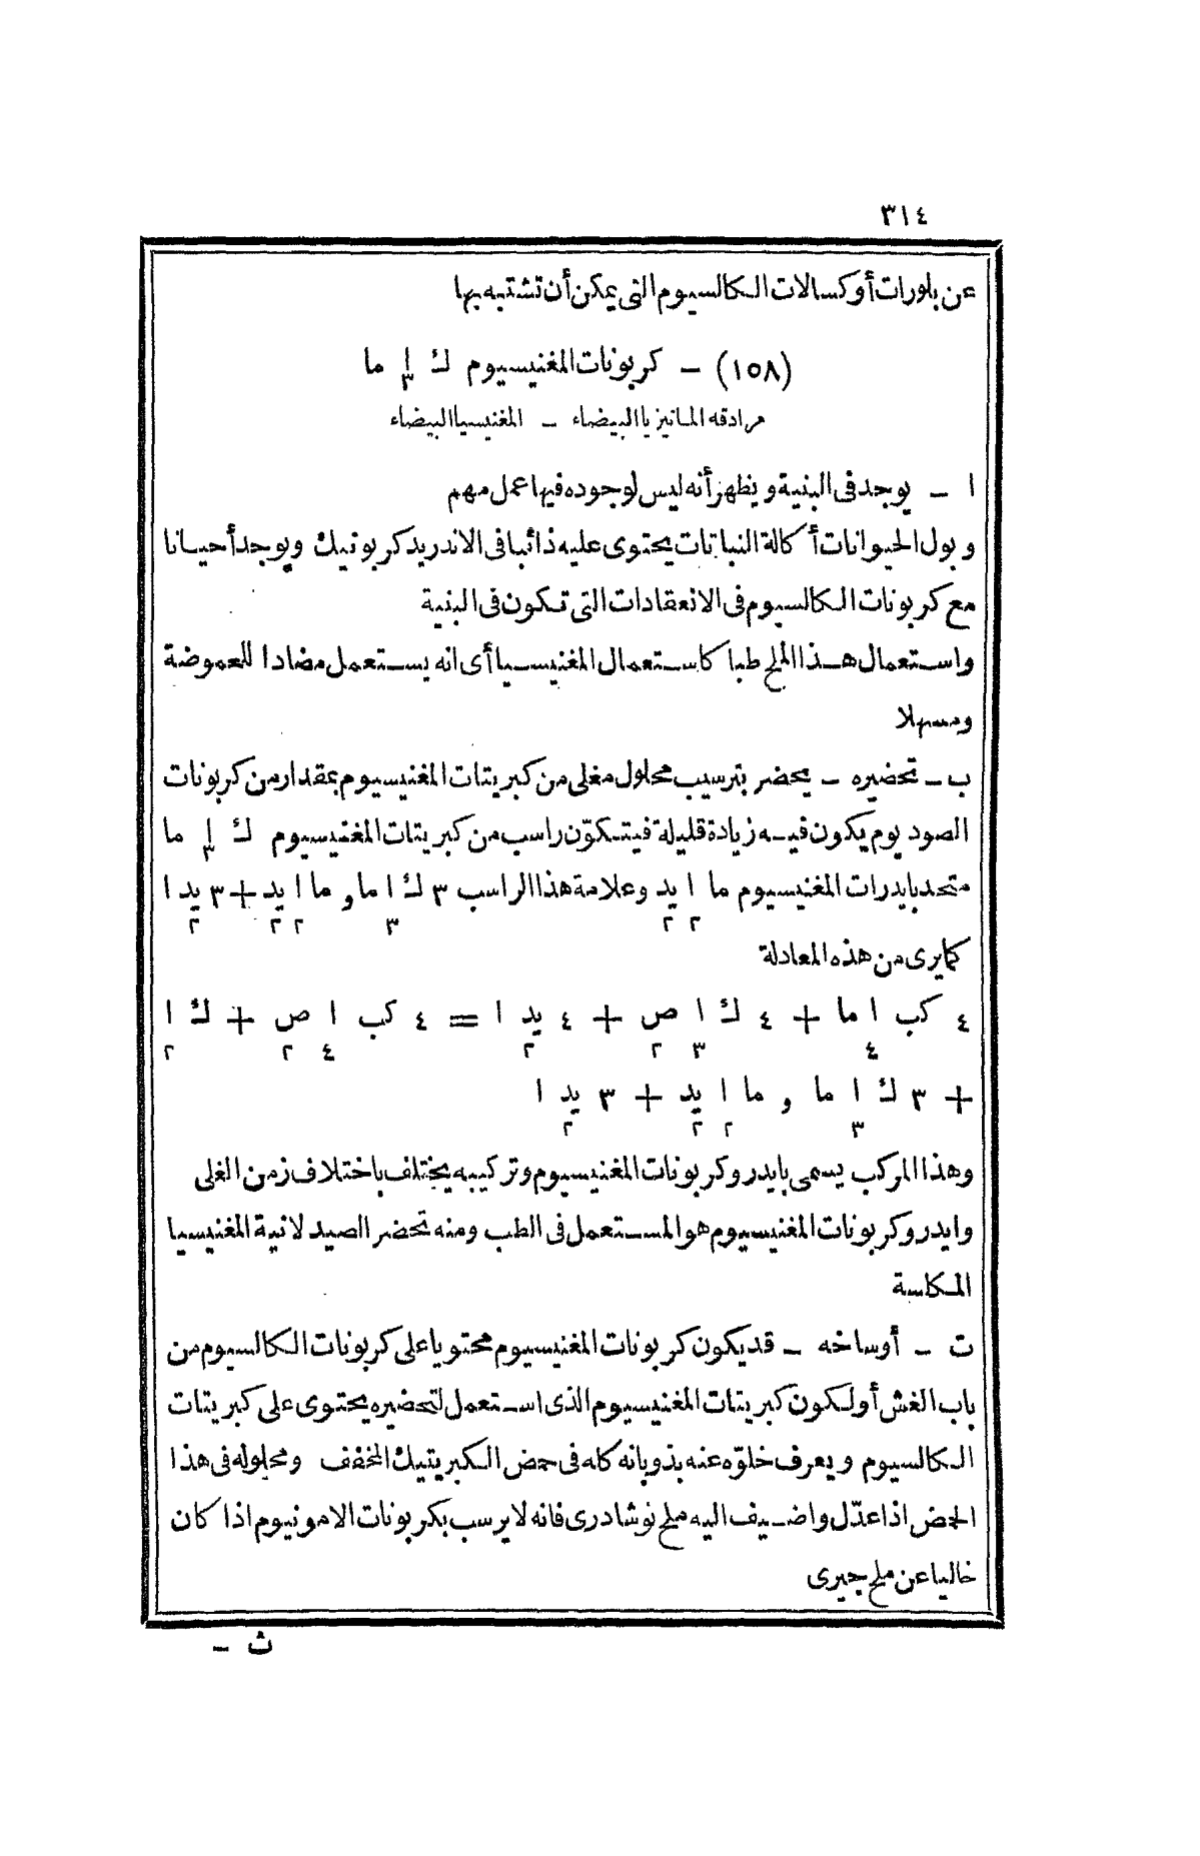 ٣١٤
عن بلورات أوكسالات الكالسيوم التى يمكن أن تشتبه بها
(١٥٨) – كربونات المغنيسيوم ك ا ما
٣
مرادفه المانيزيا البيضاء – المغنيسيا البيضاء
ا – يوجد فى البنية ويظهر أنه ليس لوجوده فيها عمل مهم
وبول الحيوانات أكالة النباتات يحتوى عليه ذائبا فى الاندريد كربونيك ويوجد أحيانا
مع كربونات الكالسيوم فى الانعقادات التى تتكون فى البنية
واستعمال هذا الملح طبا كاستعمال المغنيسيا أى انه يستعمل مضادا للحموضة
ومسهلا
ب – تحضيره – يحضر بترسيب محلول مغلى من كبريتات المغنيسيوم بمقدار من كربونات
الصوديوم يكون فيه زيادة قليلة فيتكوّن راسب من كبريتات المغنيسيوم ك ا ما
٣
متحد بايدرات المغنيسيوم ما ا يد وعلامة هذا الراسب ٣ ك ا ما و ما ا يد + ٣ يد ا
٢ ٢ ٣ ٢ ٢ ٢
كمايرى من هذه المعادلة
٤ كب ا ما + ٤ ك ا ص + ٤ يد ا = ٤ كب ا ص + ك ا
٤ ٣ ٢ ٢ ٤ ٢ ٢
+ ٣ ك ا ما و ما ا يد + ٣ يد ا
٣ ٢ ٢ ٢
وهذا المركب يسمى بايدروكربونات المغنيسيوم وتركيبه يختلف باختلاف زمن الغلى
وايدروكربونات المغنيسيوم هو المستعمل فى الطب ومنه تحضر الصيدلانية المغنيسيا
المكلسة
ت – أوساخه – قد يكون كربونات المغنيسيوم محتويا على كربونات الكالسيوم من
باب الغش أو لكون كبريتات المغنيسيوم الذى استعمل لتحضيره يحتوى على كبريتات
الكالسيوم ويعرف خلوّه عنه بذوبانه كله فى حمض الكبريتيك المخفف ومحلوله فى هذا
الحمض اذا عدّل واضيف اليه ملح نوشادرى فانه لا يرسب بكربونات الامونيوم اذا كان
خاليا عن ملح جيرى
ث –